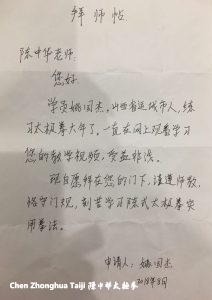 拜师帖
陈中华老师:
您好!
学员姚国杰,山西省运城市人,练
习太极拳六年了,一直在网上观看学习
您的教学视频,受益非浅。
现自愿拜在您的门下,谨遵师教,
恪守门规,刻苦学习陈式太极拳实
用拳法。
申请人:姚国杰
2018年8月
Chen Zhonghua Taiji 陈中华太极拳